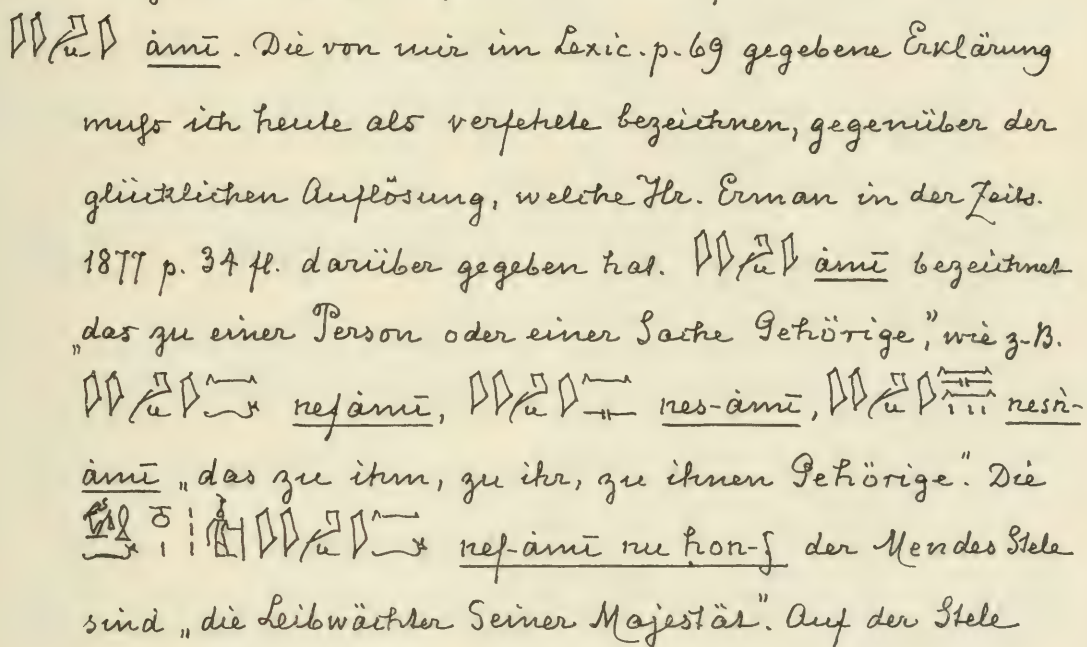 ȧmī. Die von mir im Lexic. p. 69 gegebene Erklärung
muſs ich heute als verfehlte bezeichnen, gegenüber der
glücklichen Auflösung, welche Hr. Erman in der Zeits.
1877 p. 34 fl. darüber gegeben hat. ȧmī bezeichnet
„das zu einer Person oder einer Sache Gehörige", wie z-B.
nefȧmī, nes-ȧmī, nesn-
ȧmī „das zu ihm, zu ihr, zu ihnen Gehörige". Die
nef-ȧmī nu ḥon-f der Mendes Stele
sind „die Leibwächter Seiner Majestät". Auf der Stele